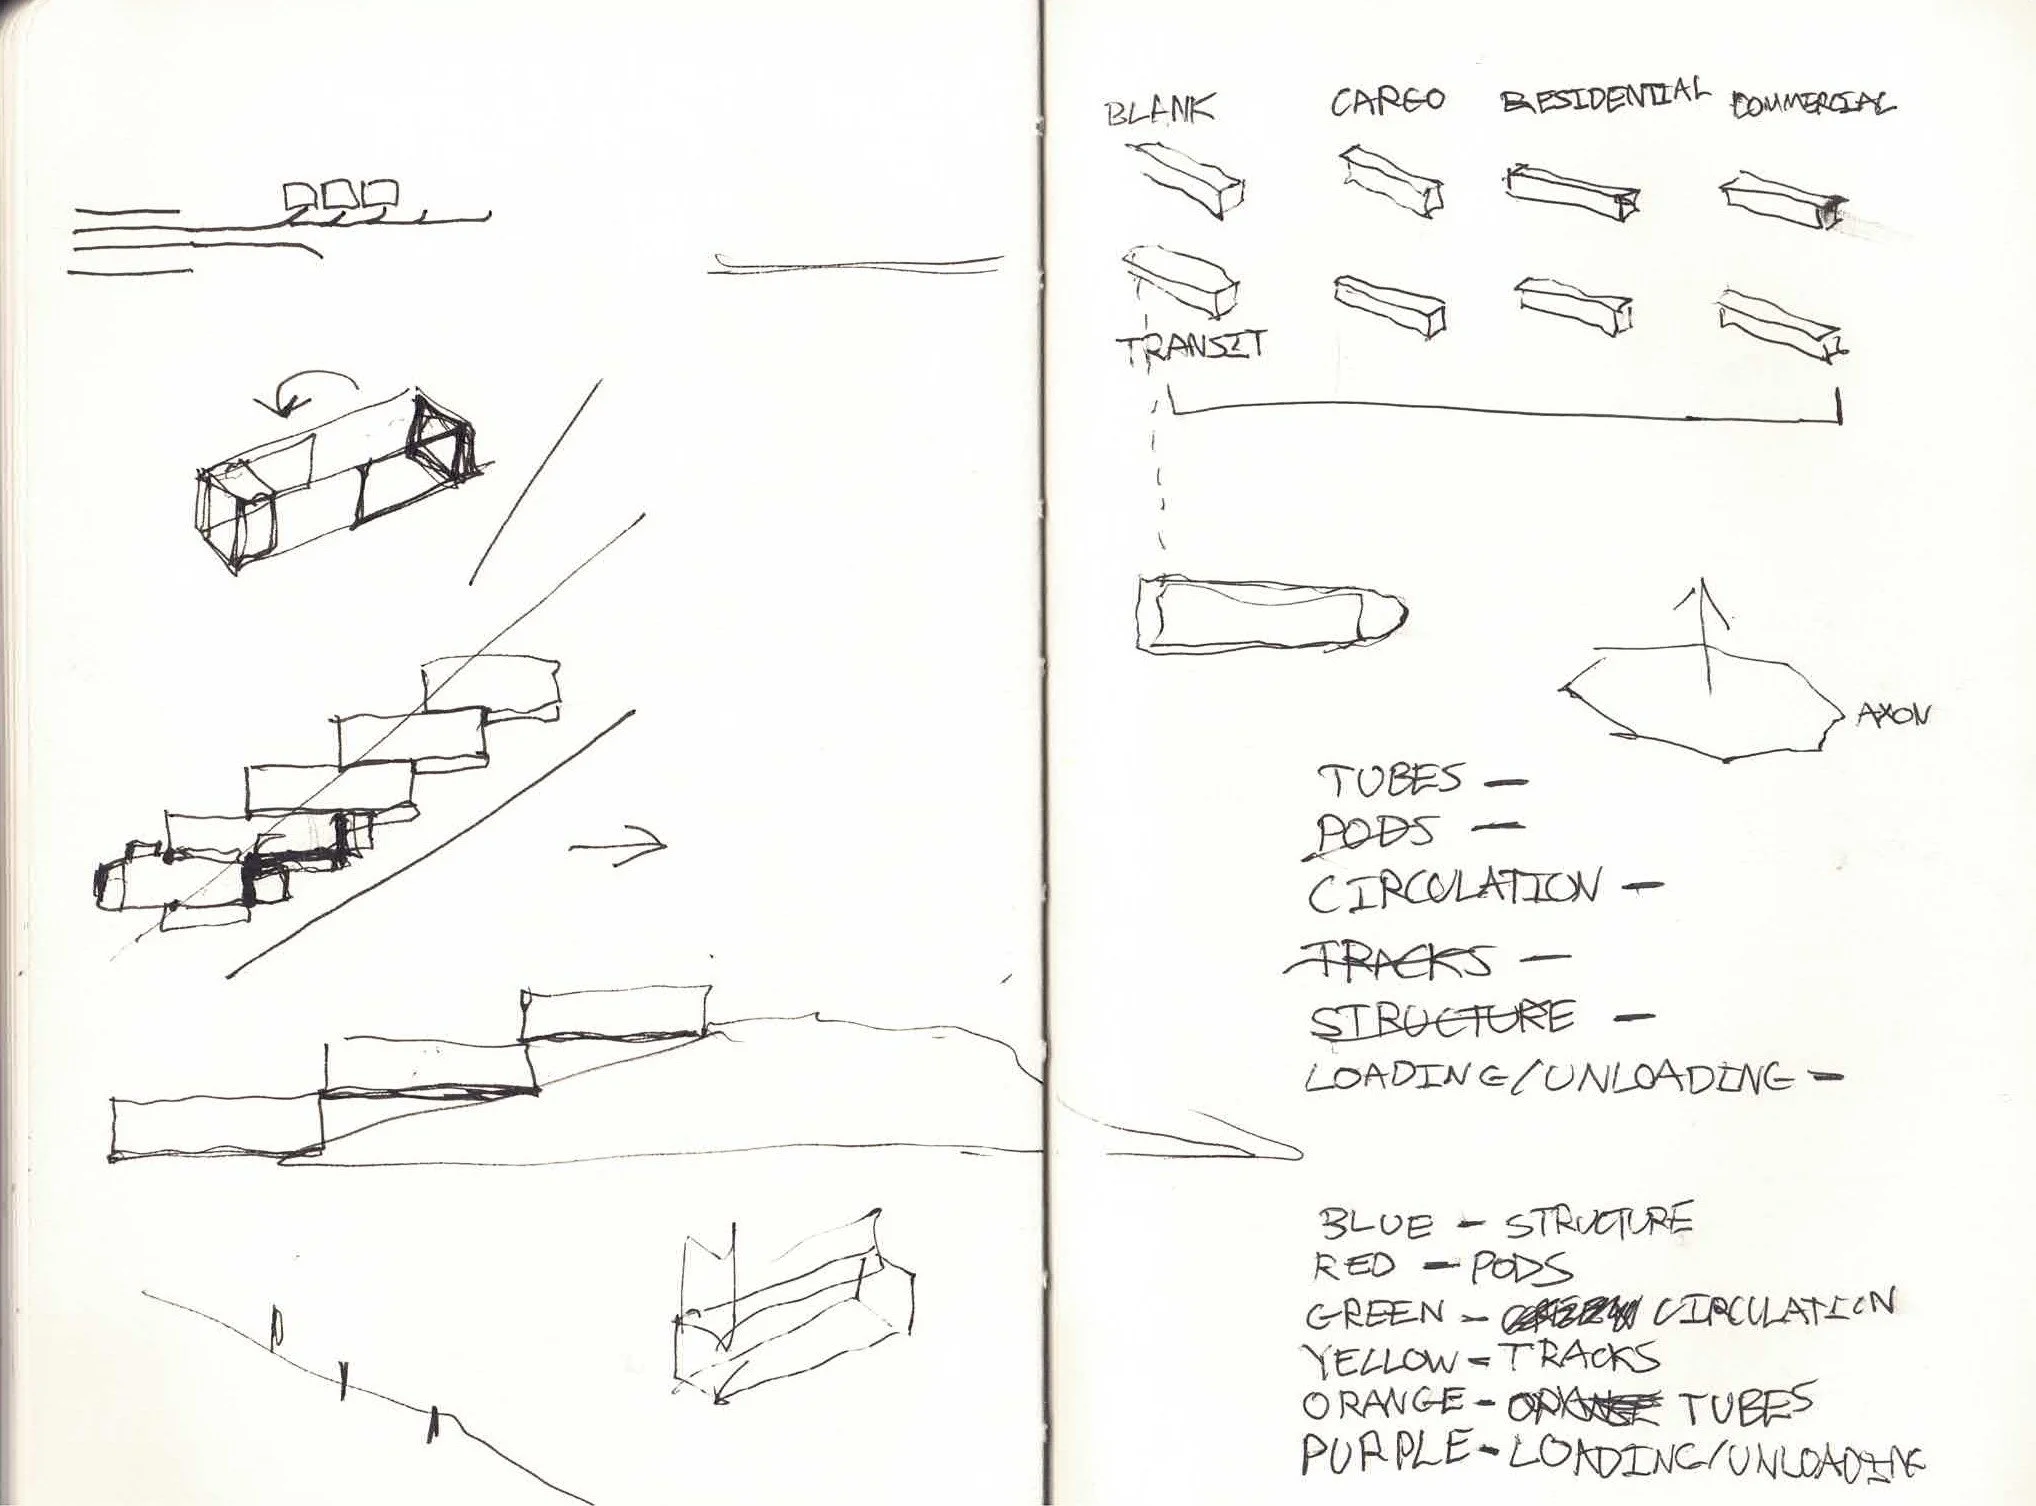 BLANK CARGO RESIDENTIAL COMMERCIAL
TRANSIT
AXON
TUBES —
PODS —
CIRCULATION —
TRACKS —
STRUCTURE —
LOADING/UNLOADING —
BLUE - STRUCTURE
RED - PODS
GREEN - CIRCULATION
YELLOW - TRACKS
ORANGE - ORANGE TUBES
PURPLE - LOADING/UNLOADING